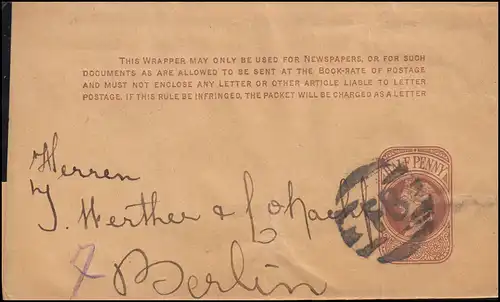 THIS WRAPPER MAY ONLY BE USED FOR NEWSPAPERS, OR FOR SUCH
DOCUMENTS AS ARE ALLOWED TO BE SENT AT THE BOOK-RATE OF POSTAGE
AND MUST NOT ENCLOSE ANY LETTER OR OTHER ARTICLE LIABLE TO LETTER
POSTAGE. IF THIS RULE BE INFRINGED, THE PACKET WILL BE CHARGED AS A LETTER
HALF PENNY
Herren
J. Werther &
7
Berlin